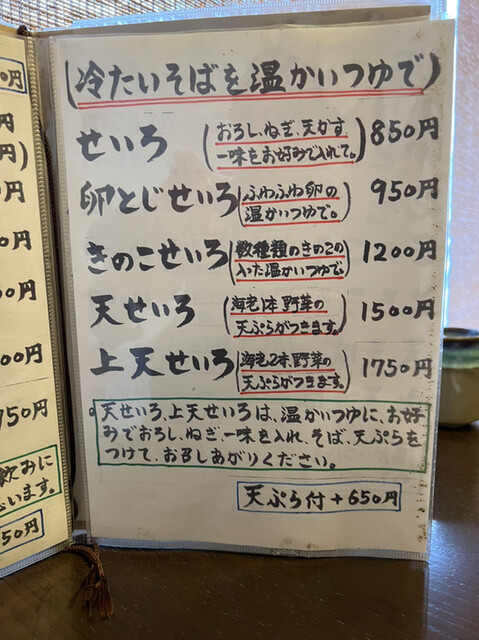 (冷たいそばを温かいつゆで)
せいろ (おろし、ねぎ、天かす 850円
一味をお好みで入れて。)
卵とじせいろ (ふわふわ卵の 950円
温かいつゆで。)
きのこせいろ (数種類のきのこの 1200円
入った温かいつゆで。)
天せいろ (海老1本野菜の 1500円
天ぷらがつきます。)
上天せいろ (海老2本野菜の 1750円
天ぷらがつきます。)
天せいろ、上天せいろは、温かいつゆに、お好
みでおろし、ねぎ、一味を入れ、そば、天ぷらを
つけて、お召しあがりください。
天ぷら付+650円
円
円
円)
0円
0円
00円
00円
750円
飲みに
います。
50円